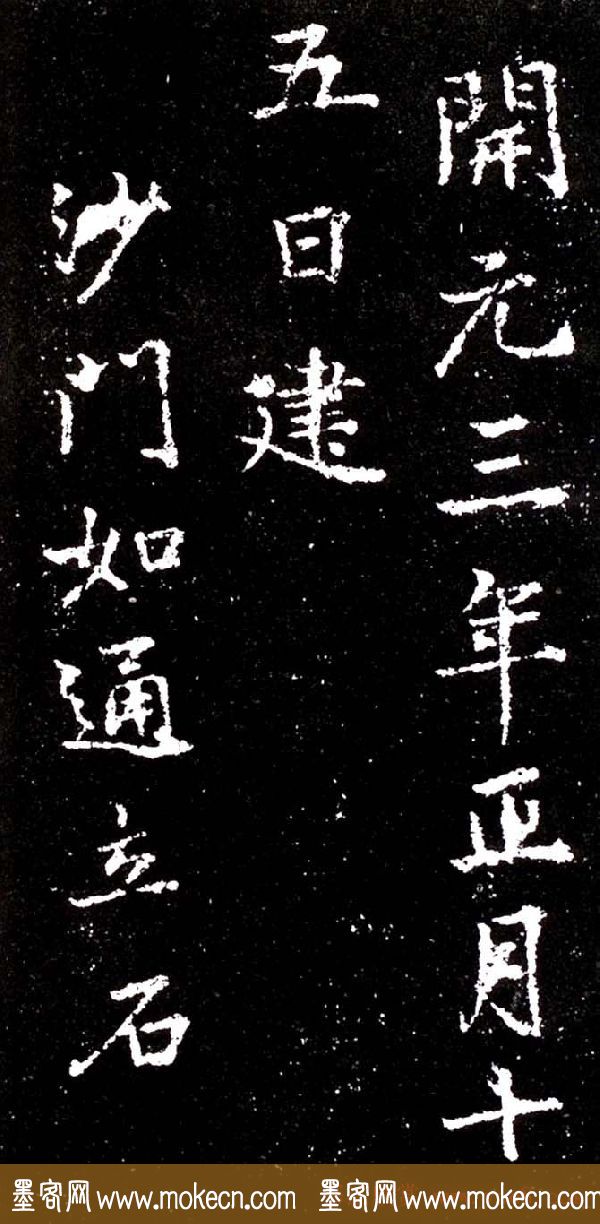 開元三年正月十
五日建
沙門如通立石
墨客网 www.mokecn.com 墨客网 www.mokecn.com